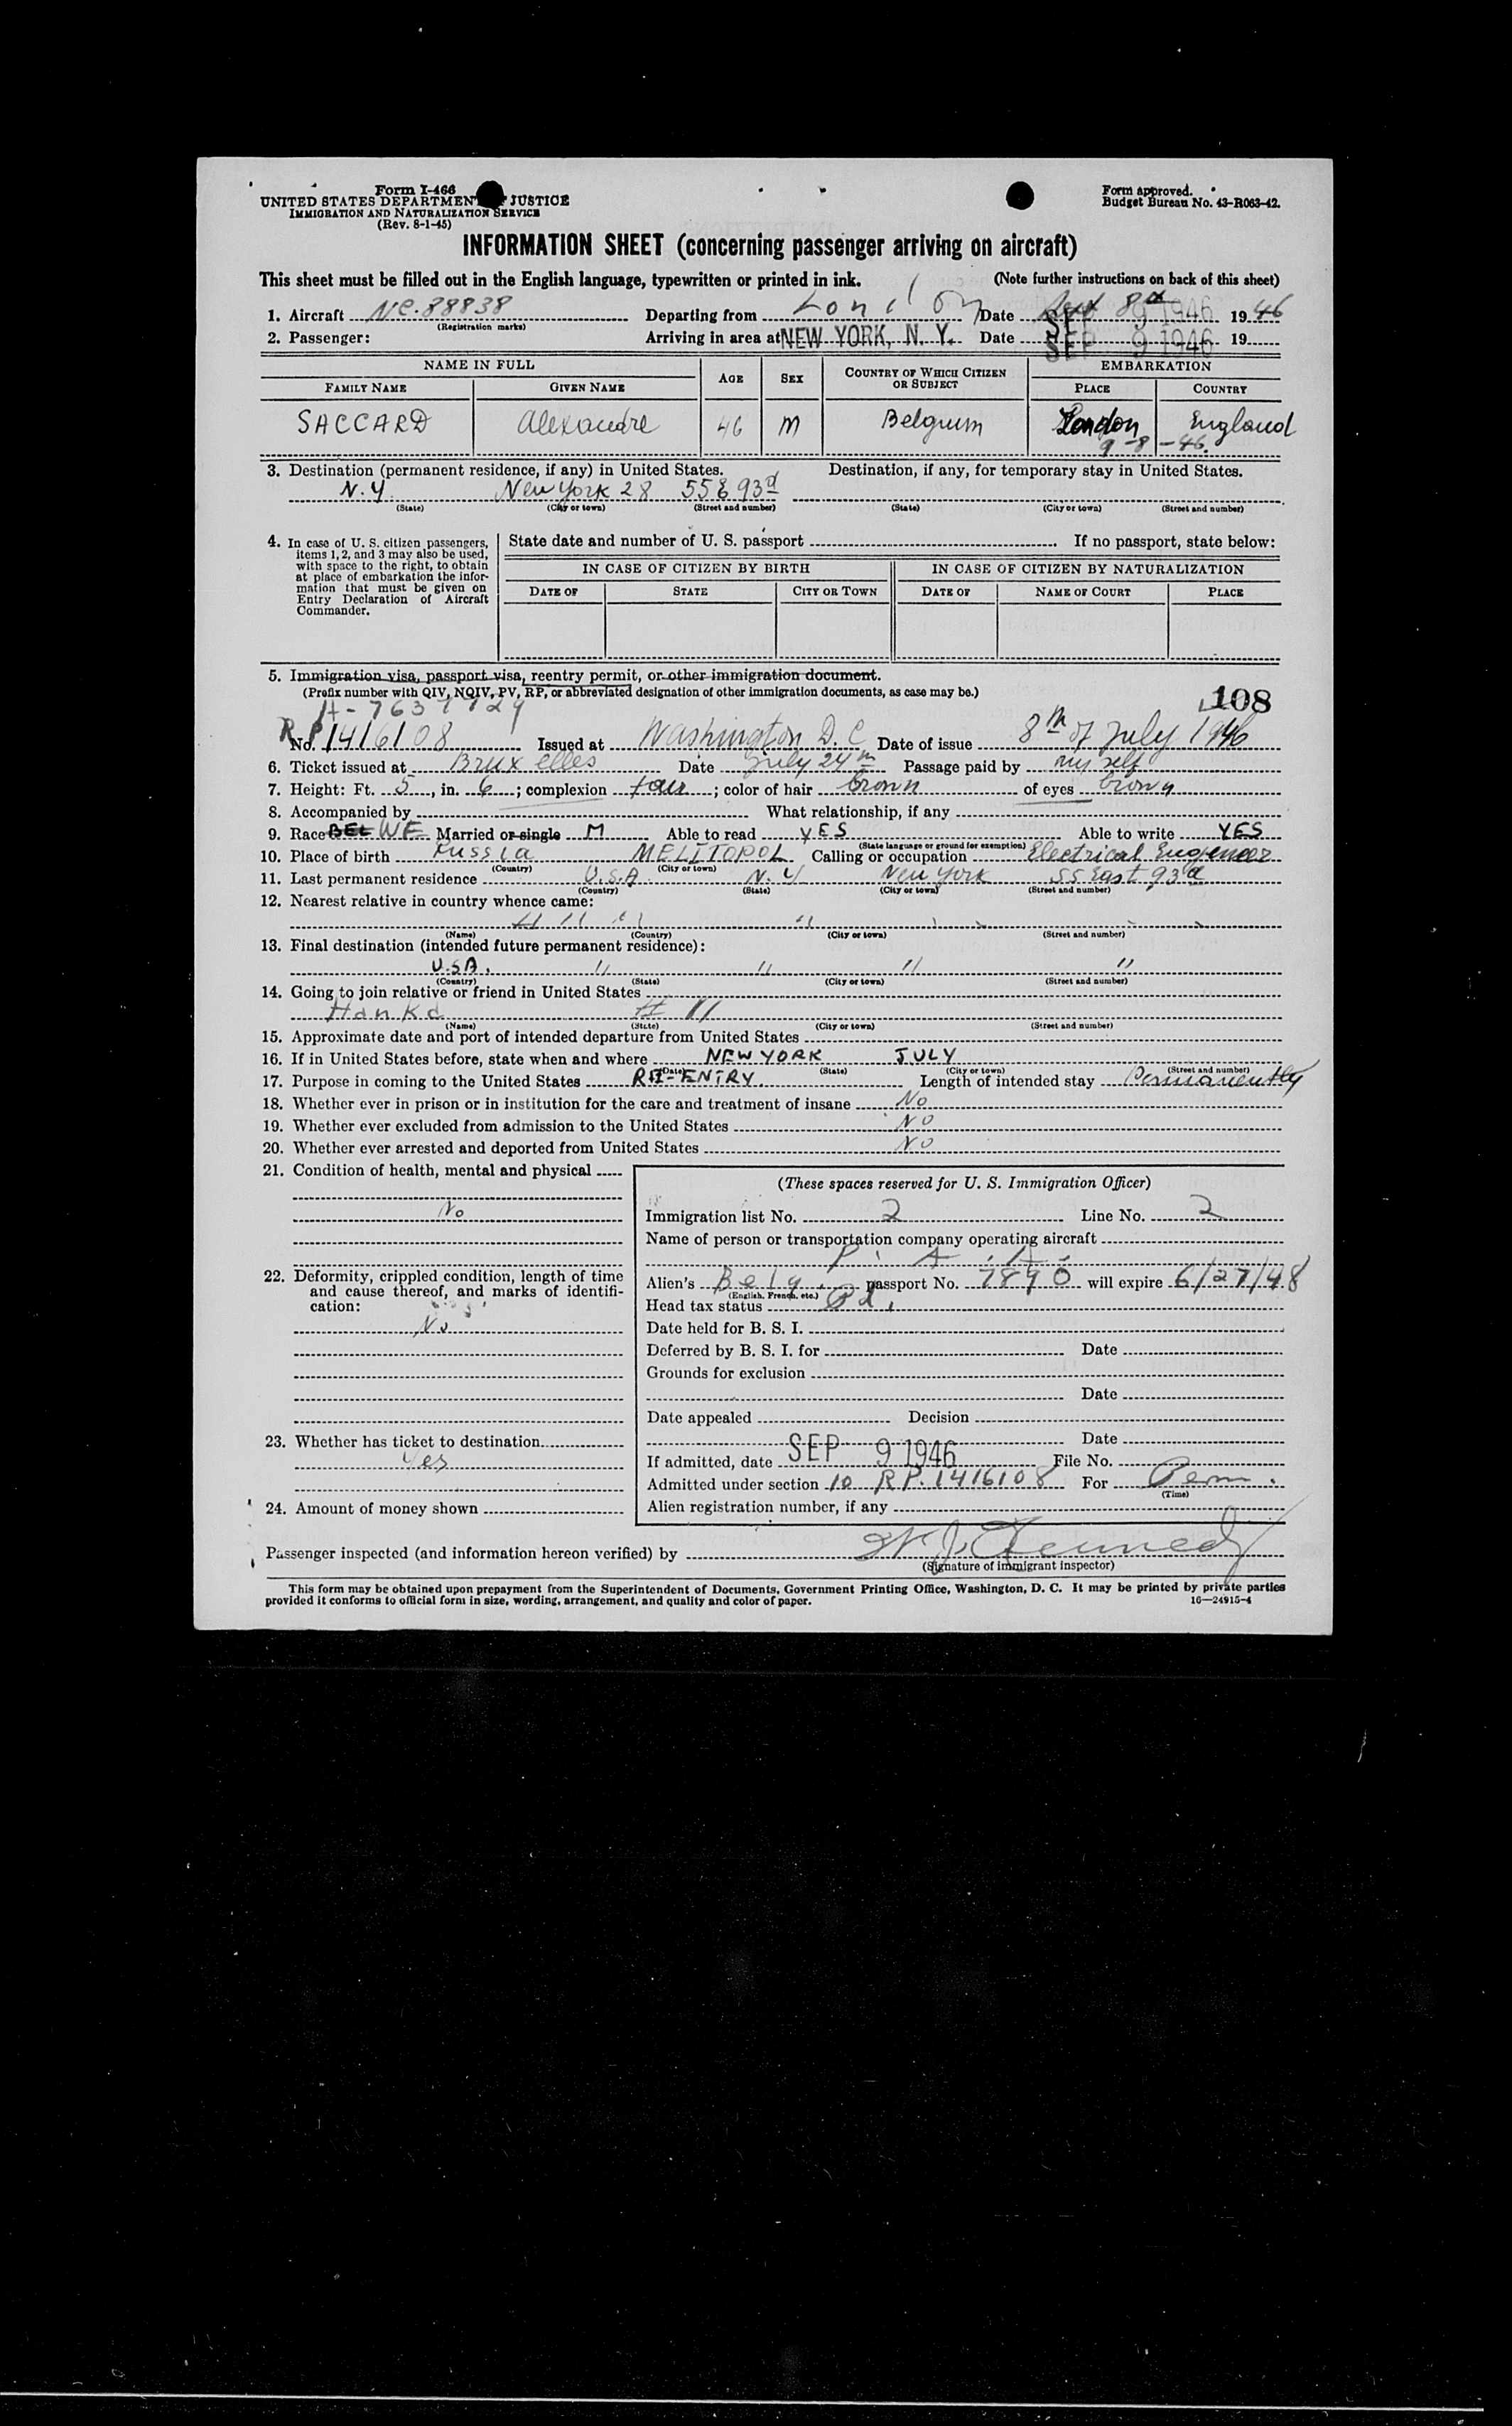 Form I-466
UNITED STATES DEPARTMENT OF JUSTICE
IMMIGRATION AND NATURALIZATION SERVICE
(Rev. 8-1-45)
Form approved.
Budget Bureau No. 43-R063-42.
INFORMATION SHEET (concerning passenger arriving on aircraft)
This sheet must be filled out in the English language, typewritten or printed in ink. (Note further instructions on back of this sheet)
1. Aircraft NC.88838 Departing from London Date Sept 8th SEP 9 1946 1946
(Registration marks)
2. Passenger: Arriving in area at NEW YORK, N. Y. Date SEP 9 1946 19
NAME IN FULL AGE SEX COUNTRY OF WHICH CITIZEN OR SUBJECT EMBARKATION
FAMILY NAME GIVEN NAME PLACE COUNTRY
SACCARD Alexandre 46 M Belgium London England
9-8-46.
3. Destination (permanent residence, if any) in United States. Destination, if any, for temporary stay in United States.
N.Y. New York 28 55 E 93d
(State) (City or town) (Street and number) (State) (City or town) (Street and number)
4. In case of U. S. citizen passengers, items 1, 2, and 3 may also be used, with space to the right, to obtain at place of embarkation the information that must be given on Entry Declaration of Aircraft Commander.
State date and number of U. S. passport If no passport, state below:
IN CASE OF CITIZEN BY BIRTH IN CASE OF CITIZEN BY NATURALIZATION
DATE OF STATE CITY OR TOWN DATE OF NAME OF COURT PLACE
5. Immigration visa, passport visa, reentry permit, or other immigration document.
(Prefix number with QIV, NQIV, PV, RP, or abbreviated designation of other immigration documents, as case may be.)
108
RP No. 1416108 Issued at Washington D.C Date of issue 8th of July 1946
6. Ticket issued at Bruxelles Date July 24th Passage paid by my self
7. Height: Ft. 5, in. 6; complexion fair; color of hair brown of eyes brown
8. Accompanied by What relationship, if any
9. Race BEL WE Married or single M Able to read YES Able to write YES
(State language or ground for exemption)
10. Place of birth Russia MELITOPOL Calling or occupation Electrical Engeneer
(Country) (City or town)
11. Last permanent residence U.S.A. N.Y New York 55 East 93d
(Country) (State) (City or town) (Street and number)
12. Nearest relative in country whence came:
(Name) (Country) (City or town) (Street and number)
13. Final destination (intended future permanent residence):
U.S.A. " " " "
(Country) (State) (City or town) (Street and number)
14. Going to join relative or friend in United States
Hanka "
(Name) (State) (City or town) (Street and number)
15. Approximate date and port of intended departure from United States
16. If in United States before, state when and where NEW YORK JULY
(Date) (State) (City or town) (Street and number)
17. Purpose in coming to the United States RE-ENTRY Length of intended stay Permanently
18. Whether ever in prison or in institution for the care and treatment of insane No
19. Whether ever excluded from admission to the United States No
20. Whether ever arrested and deported from United States No
21. Condition of health, mental and physical
No
22. Deformity, crippled condition, length of time and cause thereof, and marks of identification:
No
23. Whether has ticket to destination
Yes
24. Amount of money shown
(These spaces reserved for U. S. Immigration Officer)
Immigration list No. 2 Line No. 2
Name of person or transportation company operating aircraft
P. A. A.
Alien's Belg. passport No. 7890 will expire 6/27/48
(English, French, etc.)
Head tax status Pd.
Date held for B. S. I.
Deferred by B. S. I. for Date
Grounds for exclusion
Date
Date appealed Decision
Date
If admitted, date SEP 9 1946 File No.
Admitted under section 10 RP. 1416108 For Perm.
(Time)
Alien registration number, if any
Passenger inspected (and information hereon verified) by W. J. Kennedy
(Signature of immigrant inspector)
This form may be obtained upon prepayment from the Superintendent of Documents, Government Printing Office, Washington, D. C. It may be printed by private parties
provided it conforms to official form in size, wording, arrangement, and quality and color of paper. 16—24915-4